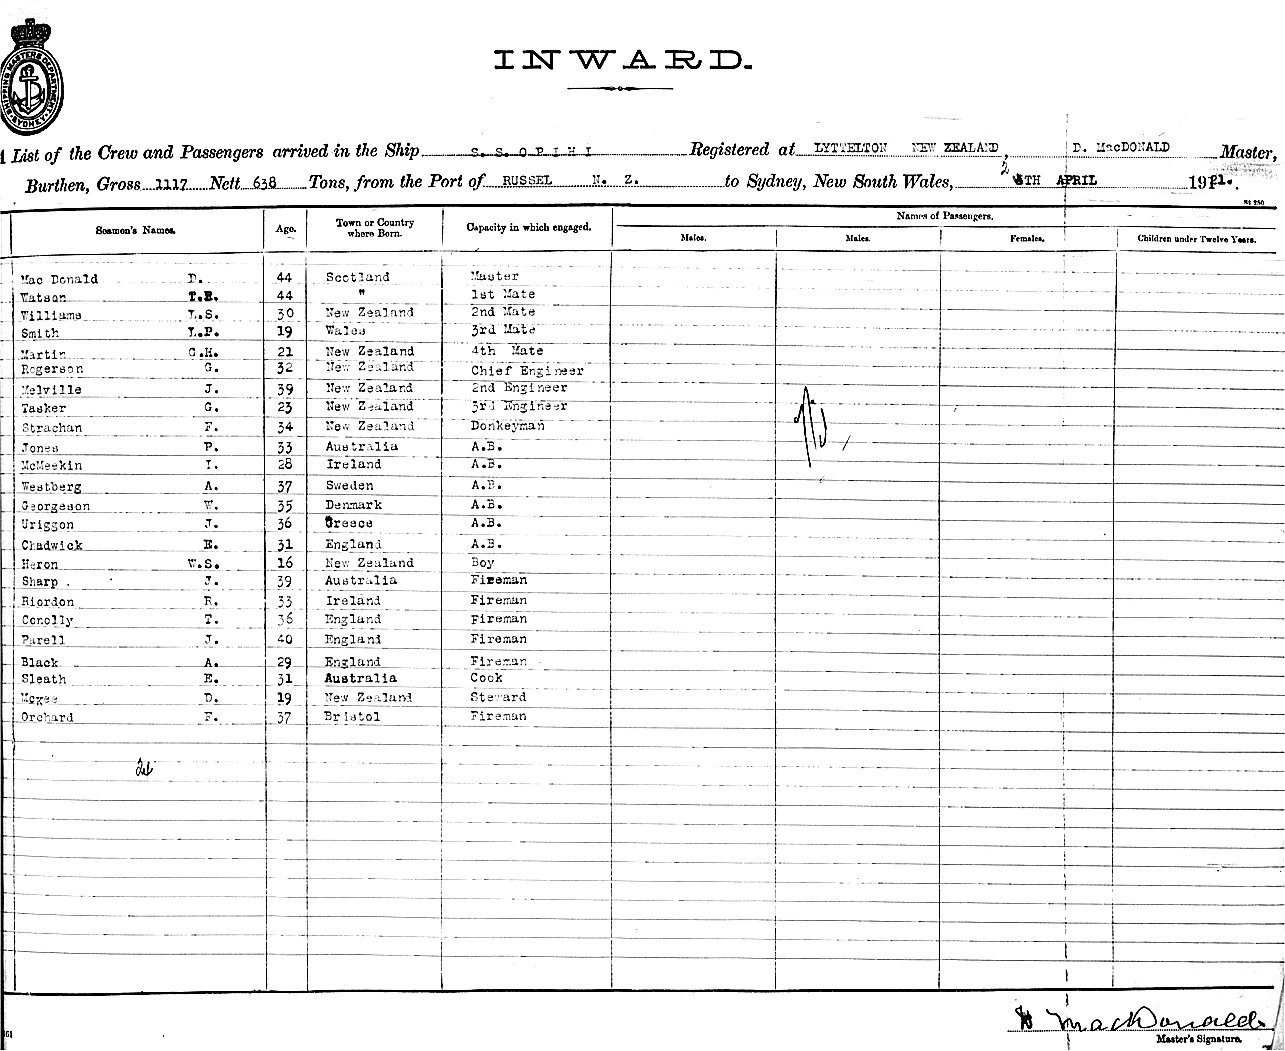 INWARD.
SHIPPING MASTERS DEPARTMENT SYDNEY
List of the Crew and Passengers arrived in the Ship S. S. OPIHI Registered at LYTTELTON NEW ZEALAND, D. MacDONALD Master,
Burthen, Gross 1117 Nett 638 Tons, from the Port of RUSSEL N. Z. to Sydney, New South Wales, TH APRIL 1921.
Seamen's Names. Age. Town or Country where Born. Capacity in which engaged. Names of Passengers.
Males. Males. Females. Children under Twelve Years.
Mac Donald D. 44 Scotland Master
Watson T.R. 44 " 1st Mate
Williams L.S. 30 New Zealand 2nd Mate
Smith L.P. 19 Wales 3rd Mate
Martin G.H. 21 New Zealand 4th Mate
Rogerson G. 32 New Zealand Chief Engineer
Melville J. 39 New Zealand 2nd Engineer
Tasker G. 23 New Zealand 3rd Engineer
Strachan F. 34 New Zealand Donkeyman
Jones P. 33 Australia A.B.
McMeekin I. 28 Ireland A.B.
Westberg A. 37 Sweden A.B.
Georgeson W. 35 Denmark A.B.
Uriggon J. 36 Greece A.B.
Chadwick E. 31 England A.B.
Heron W.S. 16 New Zealand Boy
Sharp . J. 39 Australia Fireman
Riordon R. 33 Ireland Fireman
Conolly T. 36 England Fireman
Parell J. 40 England Fireman
Black A. 29 England Fireman
Sleath E. 31 Australia Cook
Mcgee D. 19 New Zealand Steward
Orchard F. 37 Bristol Fireman
24
D MacDonald
Master's Signature.